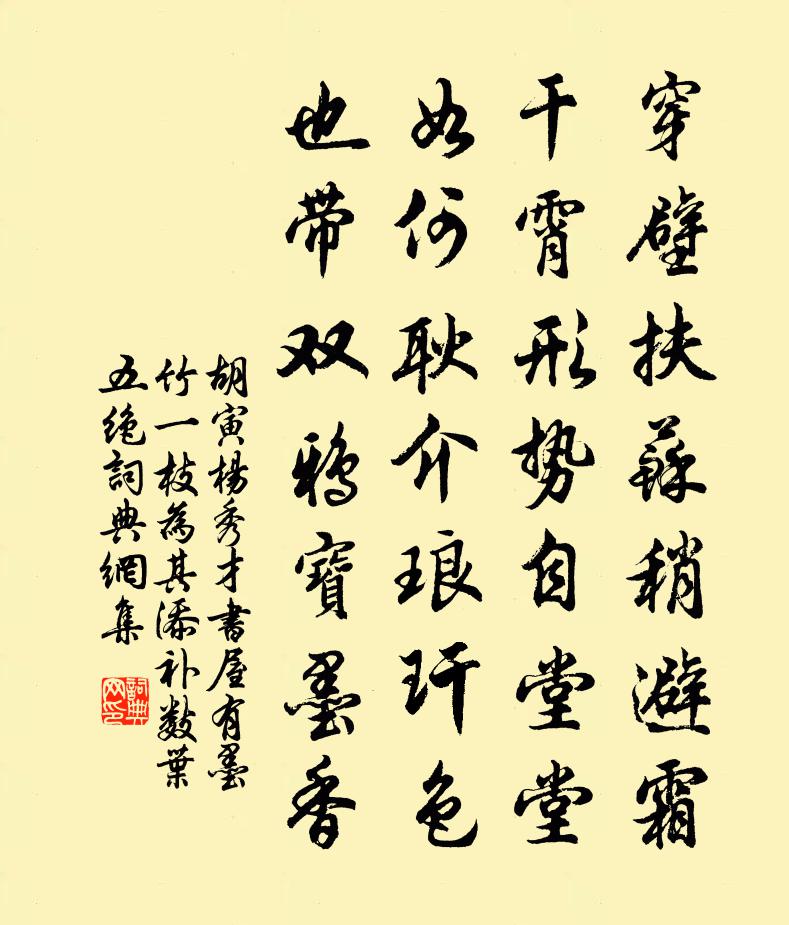 穿壁扶蘇稍避霜
干霄形势自堂堂
如何耿介琅玕色
也带双鸦寶墨香
胡寅楊秀才書屋有墨
竹一枝為其添补數葉
五绝詞典網集
詞典网印